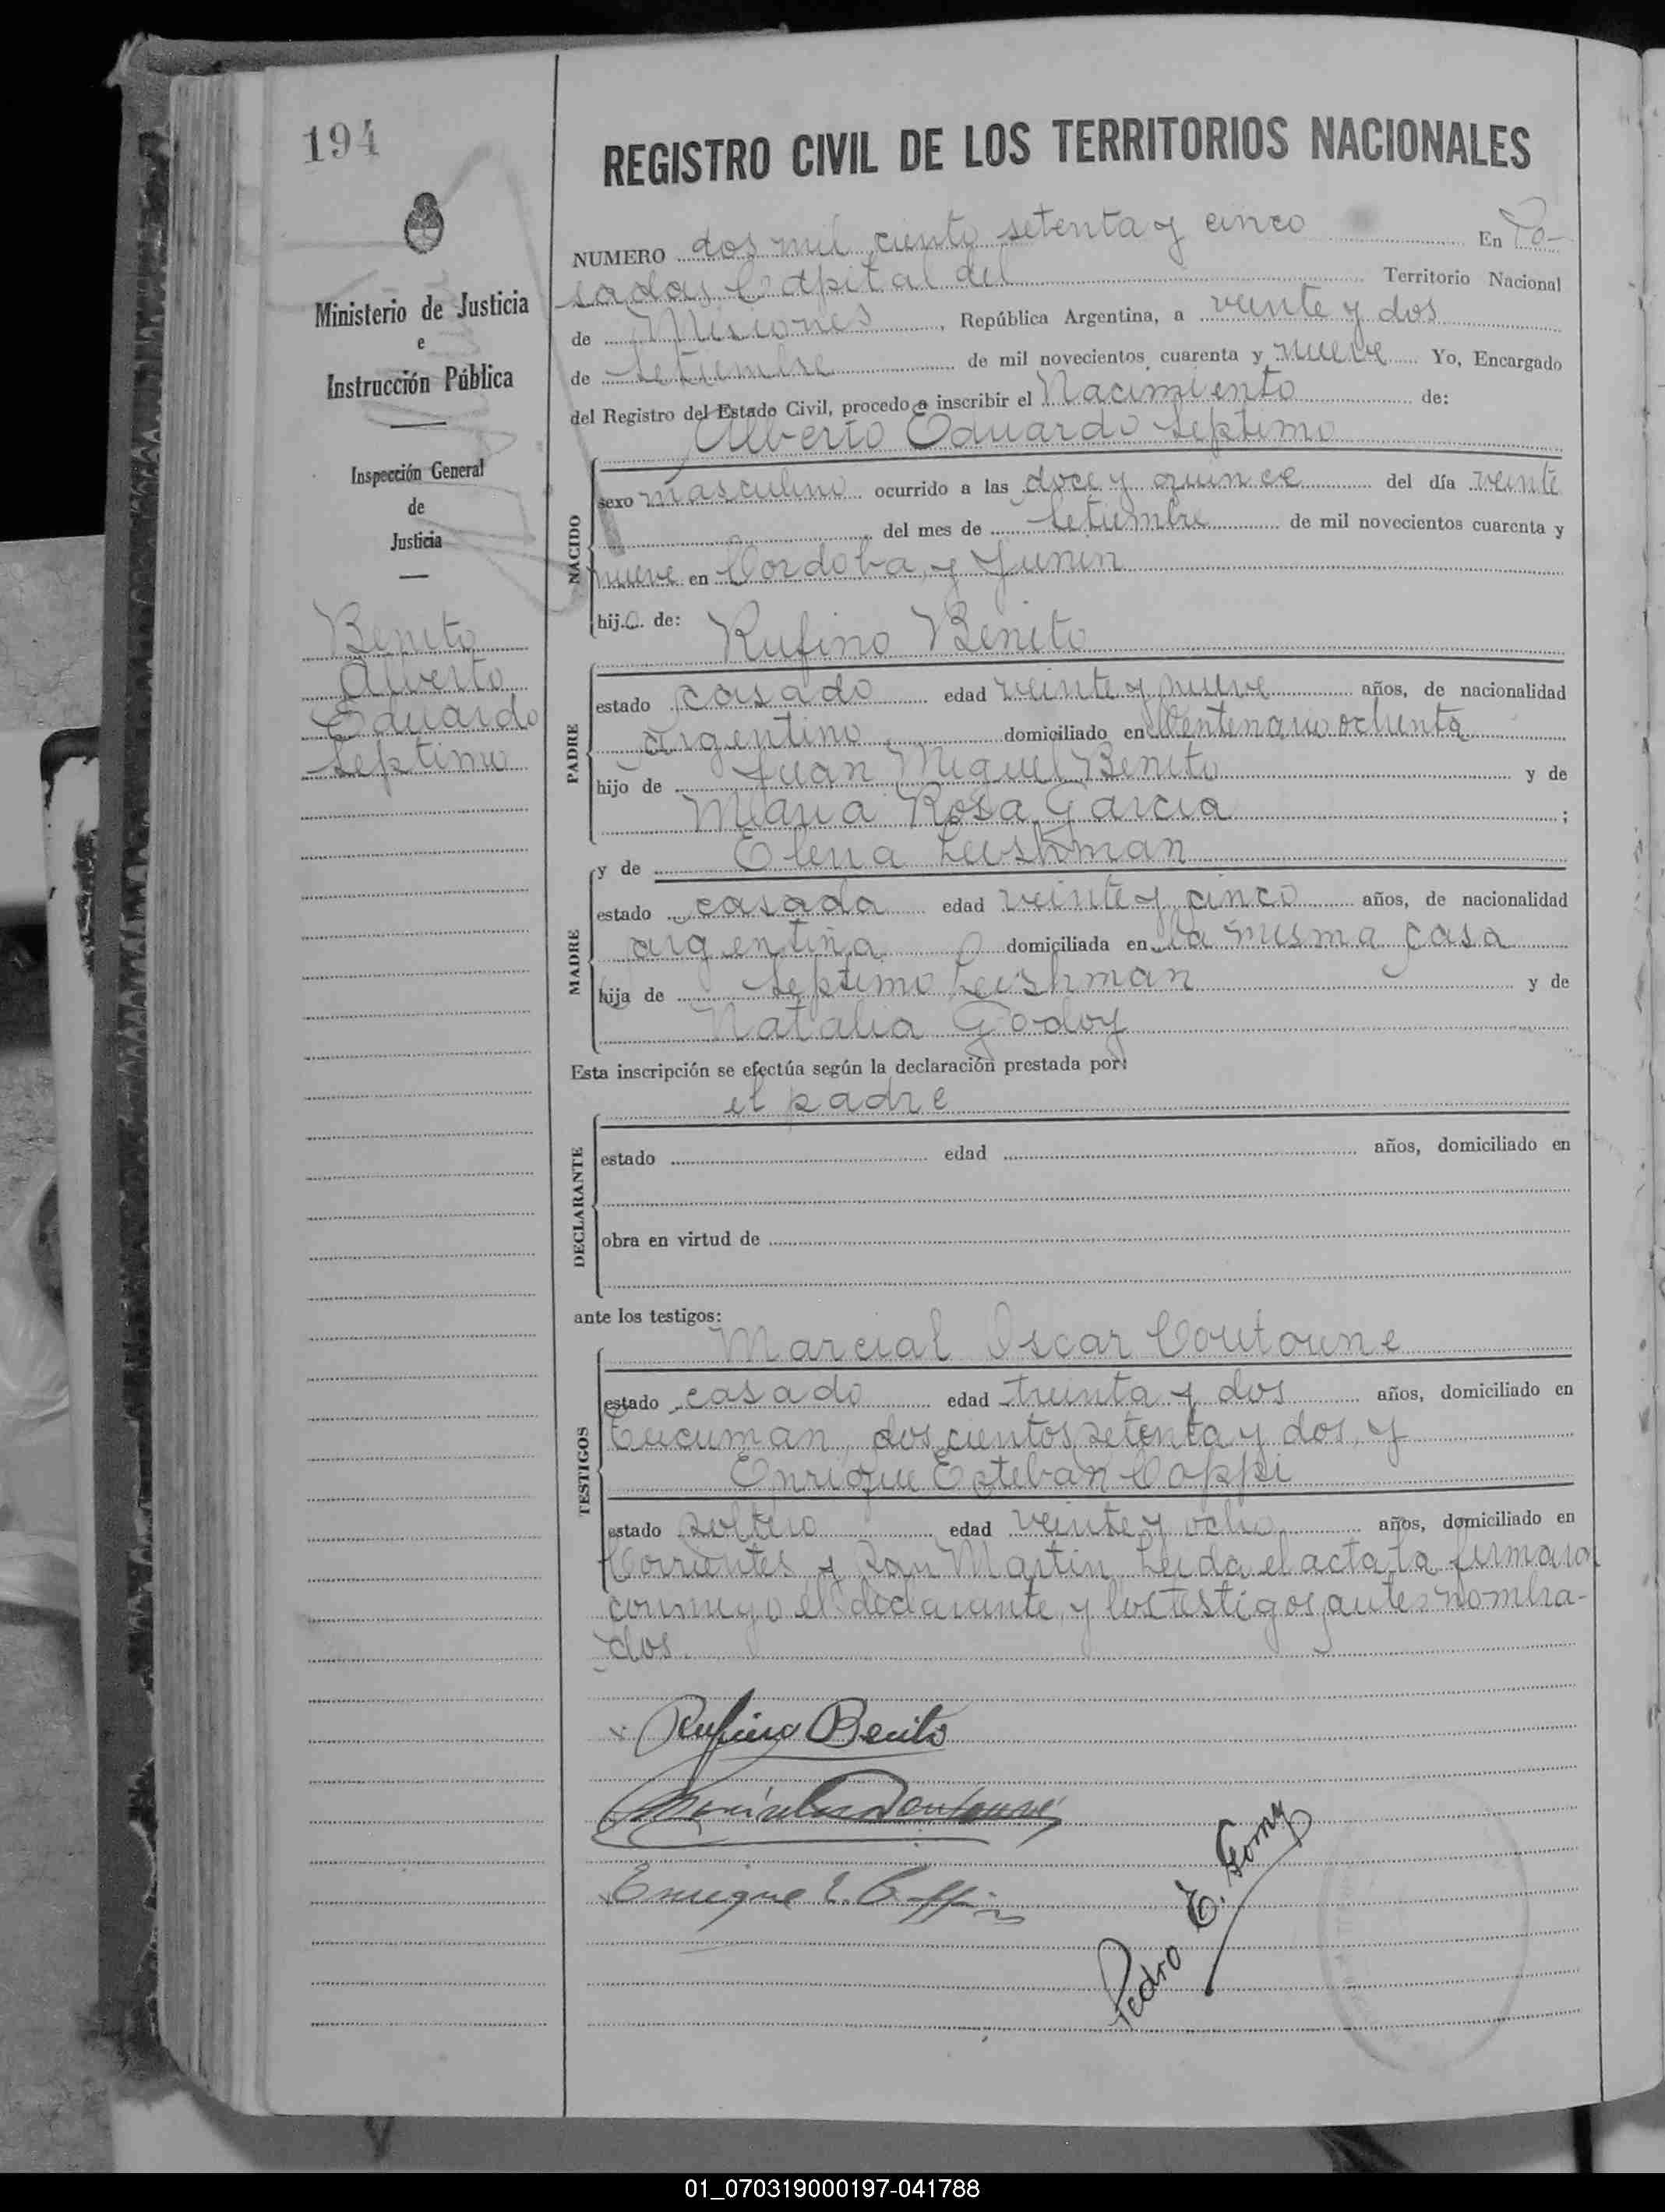 194
Ministerio de Justicia
e
Instrucción Pública
Inspección General
de
Justicia
Benito
Alberto
Eduardo
Septimo
REGISTRO CIVIL DE LOS TERRITORIOS NACIONALES
NUMERO dos mil ciento setenta y cinco En Po-
sadas Capital del Territorio Nacional
de Misiones, República Argentina, a veinte y dos
de Setiembre de mil novecientos cuarenta y nueve Yo, Encargado
del Registro del Estado Civil, procedo a inscribir el Nacimiento de:
Alberto Eduardo Septimo
NACIDO
sexo masculino ocurrido a las doce y quince del día veinte
del mes de Setiembre de mil novecientos cuarenta y
nueve en Cordoba y Junin
hijo de: Rufino Benito
PADRE
estado casado edad veinte y nueve años, de nacionalidad
argentino domiciliado en Centenario ochenta
hijo de Juan Miguel Benito y de
Maria Rosa Garcia;
y de Elena Leishman
MADRE
estado casada edad veinte y cinco años, de nacionalidad
argentina domiciliada en la misma casa
hija de Septimo Leishman y de
Natalia Godoy
Esta inscripción se efectúa según la declaración prestada por:
el padre
DECLARANTE
estado edad años, domiciliado en
obra en virtud de
ante los testigos:
Marcial Oscar Coutoune
TESTIGOS
estado casado edad treinta y dos años, domiciliado en
Tucuman, dos cientos setenta y dos, y
Enrique Esteban Coppi
estado soltero edad veinte y ocho años, domiciliado en
Corrientes y San Martin Leida el acta la firmaron
conmigo el declarante y los testigos antes nombra-
dos.
Rufino Benito
Enrique E. Coppi
Pedro E. Gomez
01_070319000197-041788